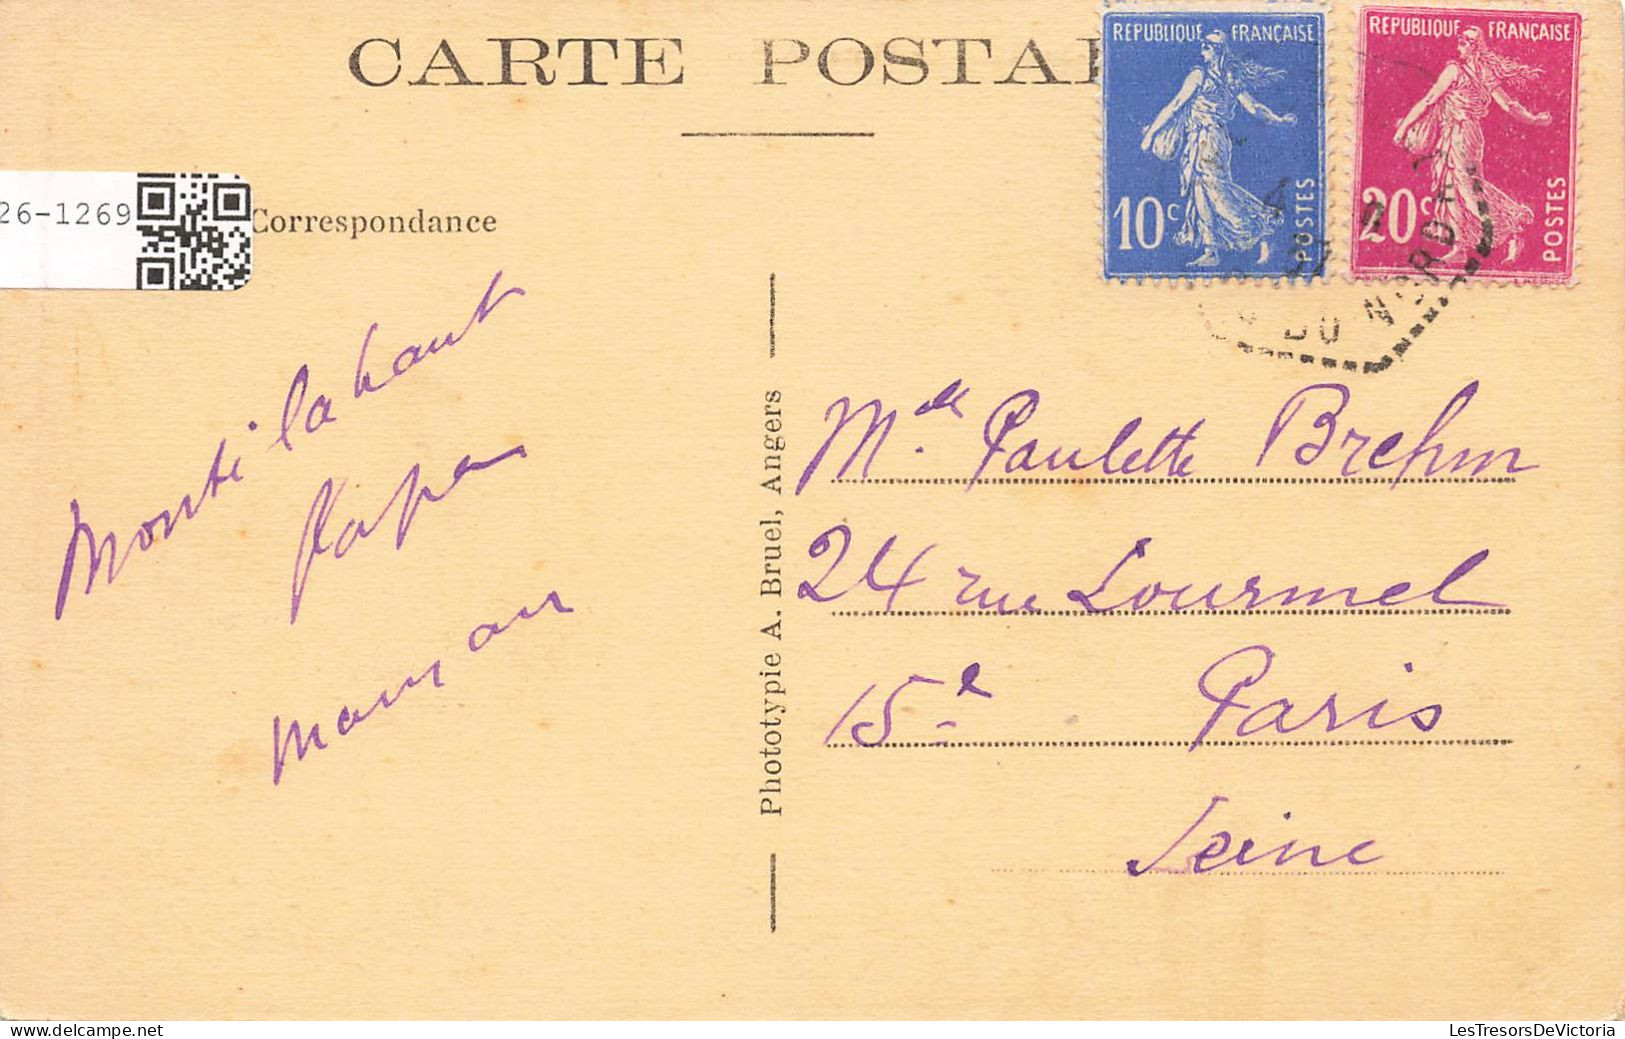 CARTE POSTAL
REPUBLIQUE FRANÇAISE
10c
POSTES
REPUBLIQUE FRANÇAISE
20c
POSTES
26-1269
Correspondance
DU NORD
Monti la haut
Papa
maman
Phototypie A. Bruel, Angers
Mlle Paulette Brehm
24 rue Lourmel
15e Paris
Seine
delcampe.net
LesTresorsDeVictoria